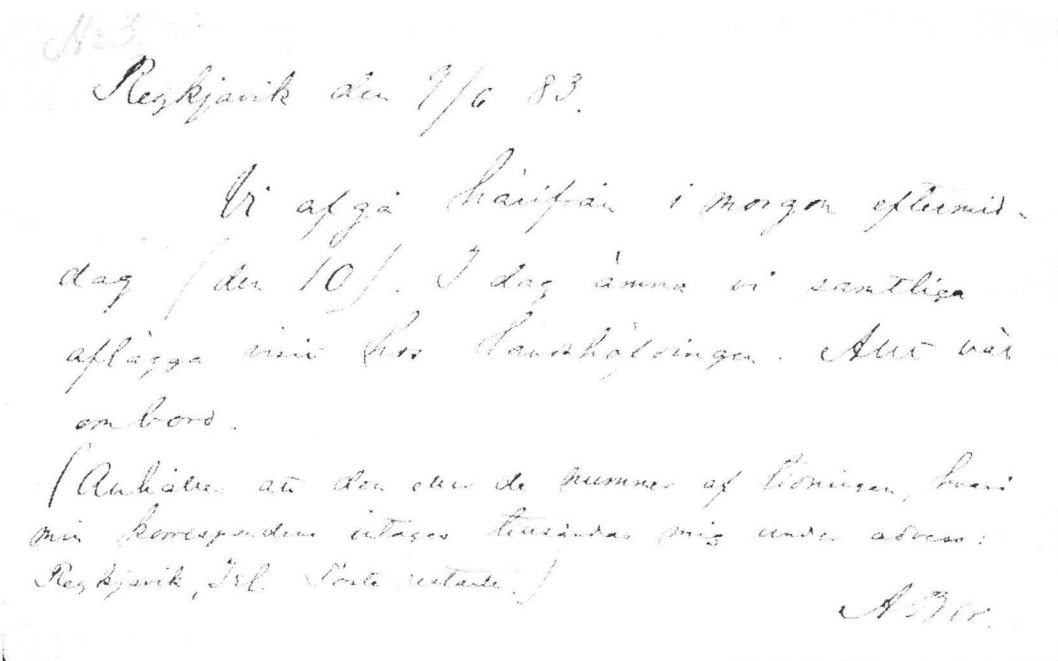 No 3
Reykjavik den 9/6 83.
Vi afgå härifrån i morgon eftermid-
dag (den 10). I dag ämna vi samtliga
aflägga visit hos Landshöfdingen. Allt väl
ombord.
(Anhåller att den eller de nummer af tidningen, hvari
min korrespondens intages tillsändas mig under adress:
Reykjavik, Isl. Poste restante.)